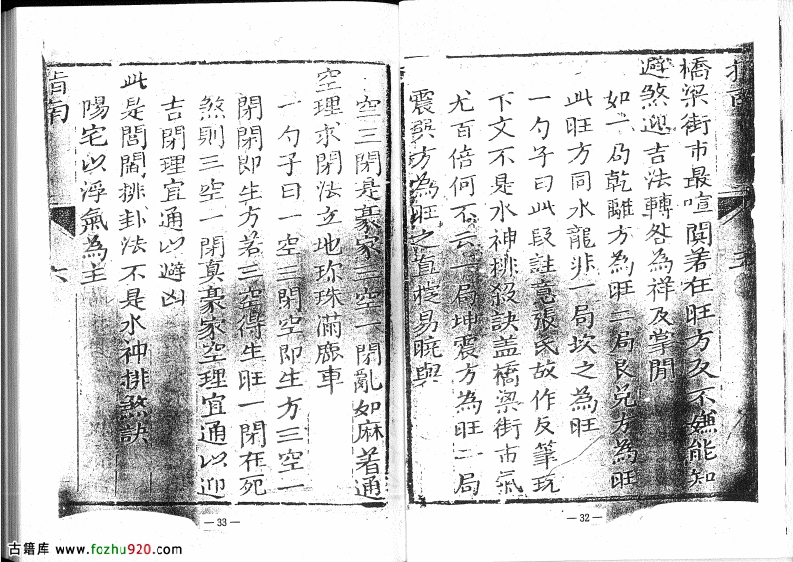 橋梁街市最喧閧若在旺方反不嫌能知
避煞迎吉法轉咎為祥反掌間
如一局乾離方為旺二局艮兌方為旺
此旺方同水龍非一局坎之為旺
一勺子曰此段註意張氏故作反筆玩
下文不是水神排殺訣蓋橋梁街市氣
尤百倍何不云一局坤震方為旺二局
震巽方為旺之直捷易曉與
— 32 —
空三閉是豪家三空一閉亂如麻著通
空理求閉法立地珍珠滿鹿車
一勺子曰一空三閉空即生方三空一
閉閉即生方若三空得生旺一閉在死
煞則三空一閉真豪家空理宜通以迎
吉閉理宜通以避凶
此是閭閻排卦法不是水神排煞訣
陽宅以浮氣為主
指南
六
— 33 —
古籍库 www.fozhu920.com